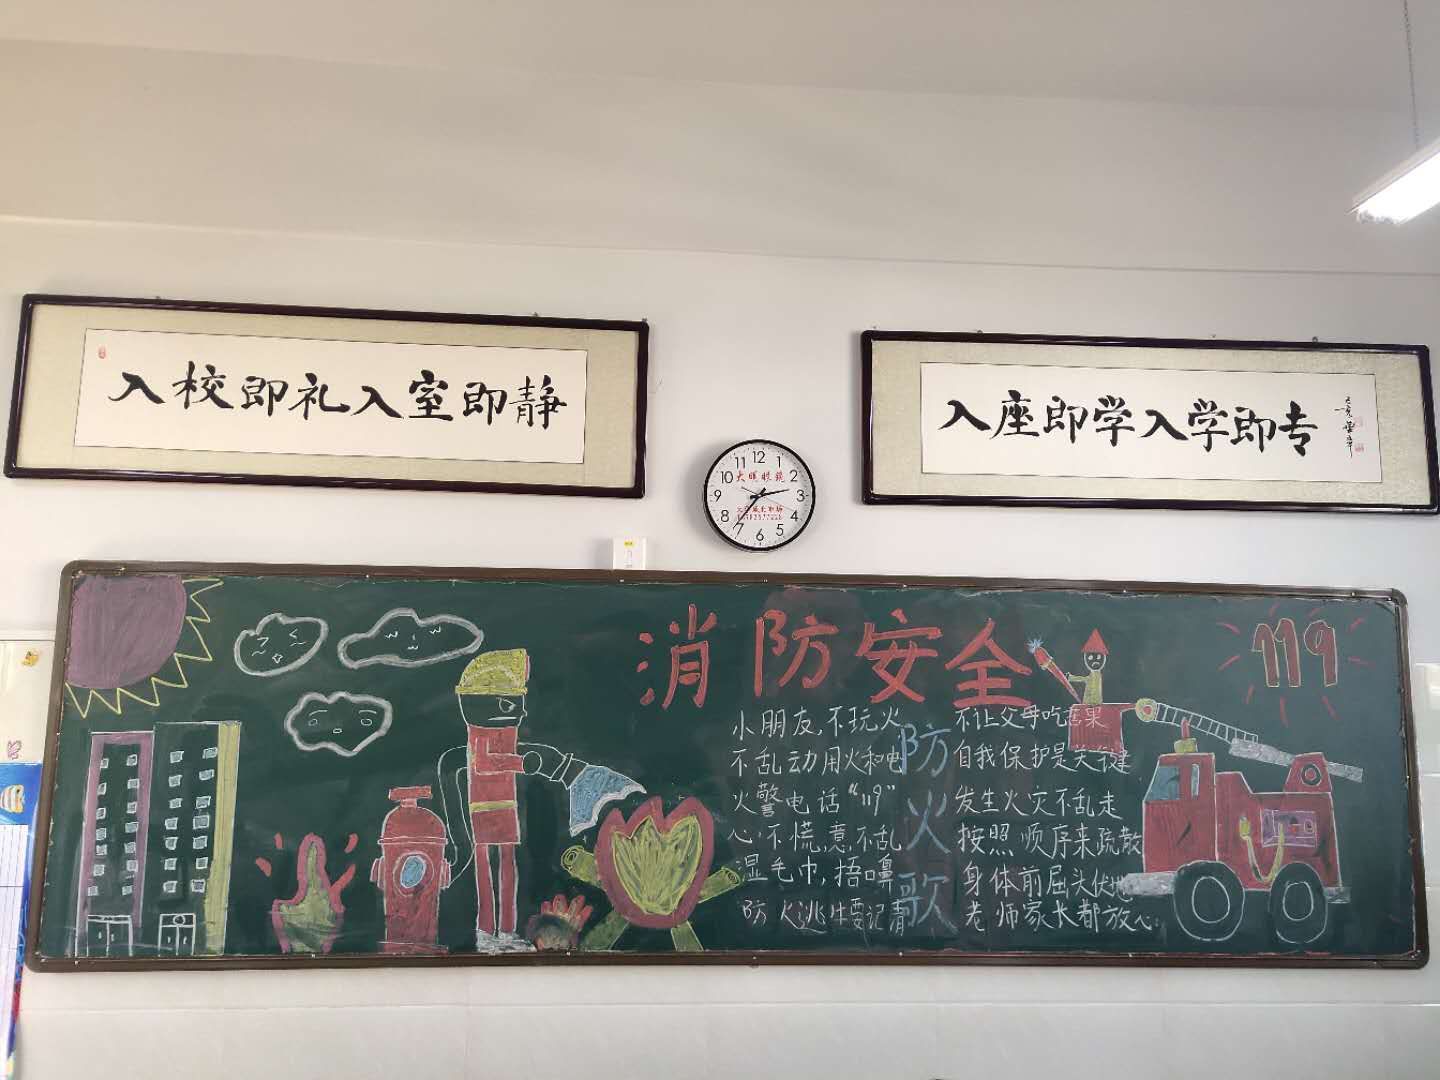 入校即礼入室即静
入座即学入学即专
大明眼镜
12
1
2
3
4
5
6
7
8
9
10
11
消防安全
119
防火歌
小朋友,不玩火
不乱动用火和电
火警电话“119”
心不慌,意不乱
湿毛巾,捂嘴鼻
防火逃生要记清
不让父母吃恶果
自我保护是关键
发生火灾不乱走
按照顺序来疏散
身体前屈头伏地
老师家长都放心.
119